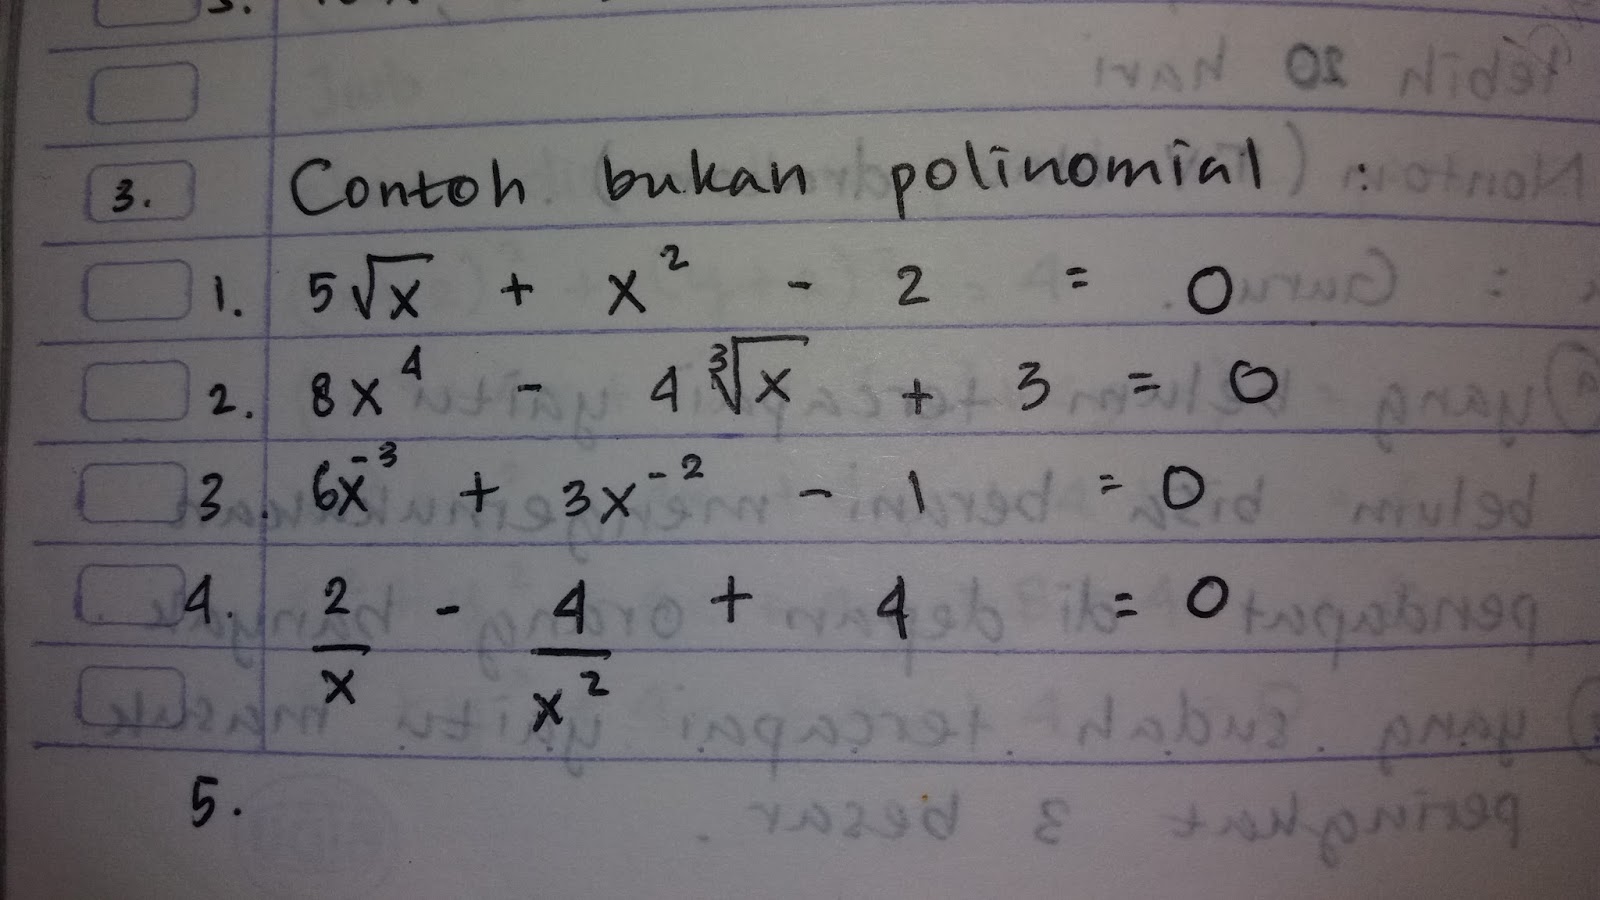 3. Contoh bukan polinomial :
1. 5√x + x² - 2 = 0
2. 8x⁴ - 4∛x + 3 = 0
3. 6x⁻³ + 3x⁻² - 1 = 0
4. 2/x - 4/x² + 4 = 0
5.